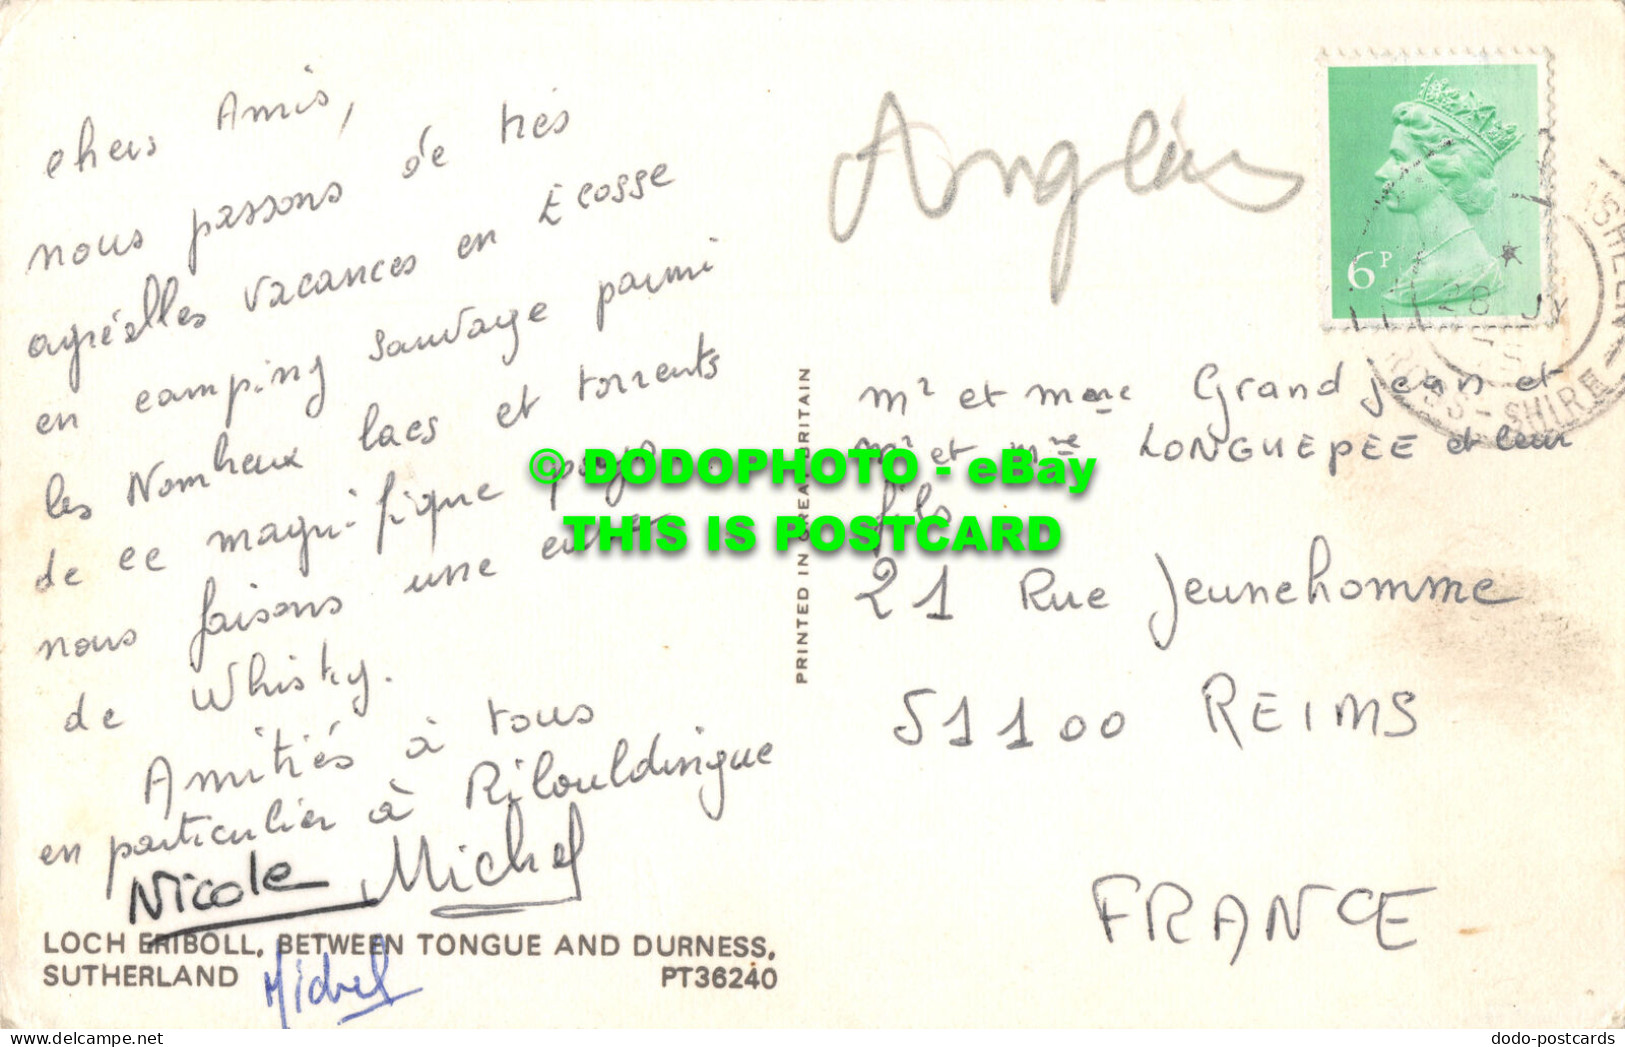 chers Amis,
nous passons de très
agréables vacances en Ecosse
en camping sauvage parmi
les Nombreux lacs et torrents
de ce magni-fique pays
nous faisons une cure
de Whisky.
Amitiés à tous
en particulier à Ribouldingue
Nicole Michel
LOCH ERIBOLL, BETWEEN TONGUE AND DURNESS,
SUTHERLAND PT36240
Michel
PRINTED IN GREAT BRITAIN
Anglais
6P
28 JY
ROSS-SHIRE
Mr et Mme Grandjean et
Mr et Mme LONGUEPEE et leur
fils
21 Rue Jeunehomme
51100 REIMS
FRANCE
© DODOPHOTO - eBay
THIS IS POSTCARD
dodo-postcards